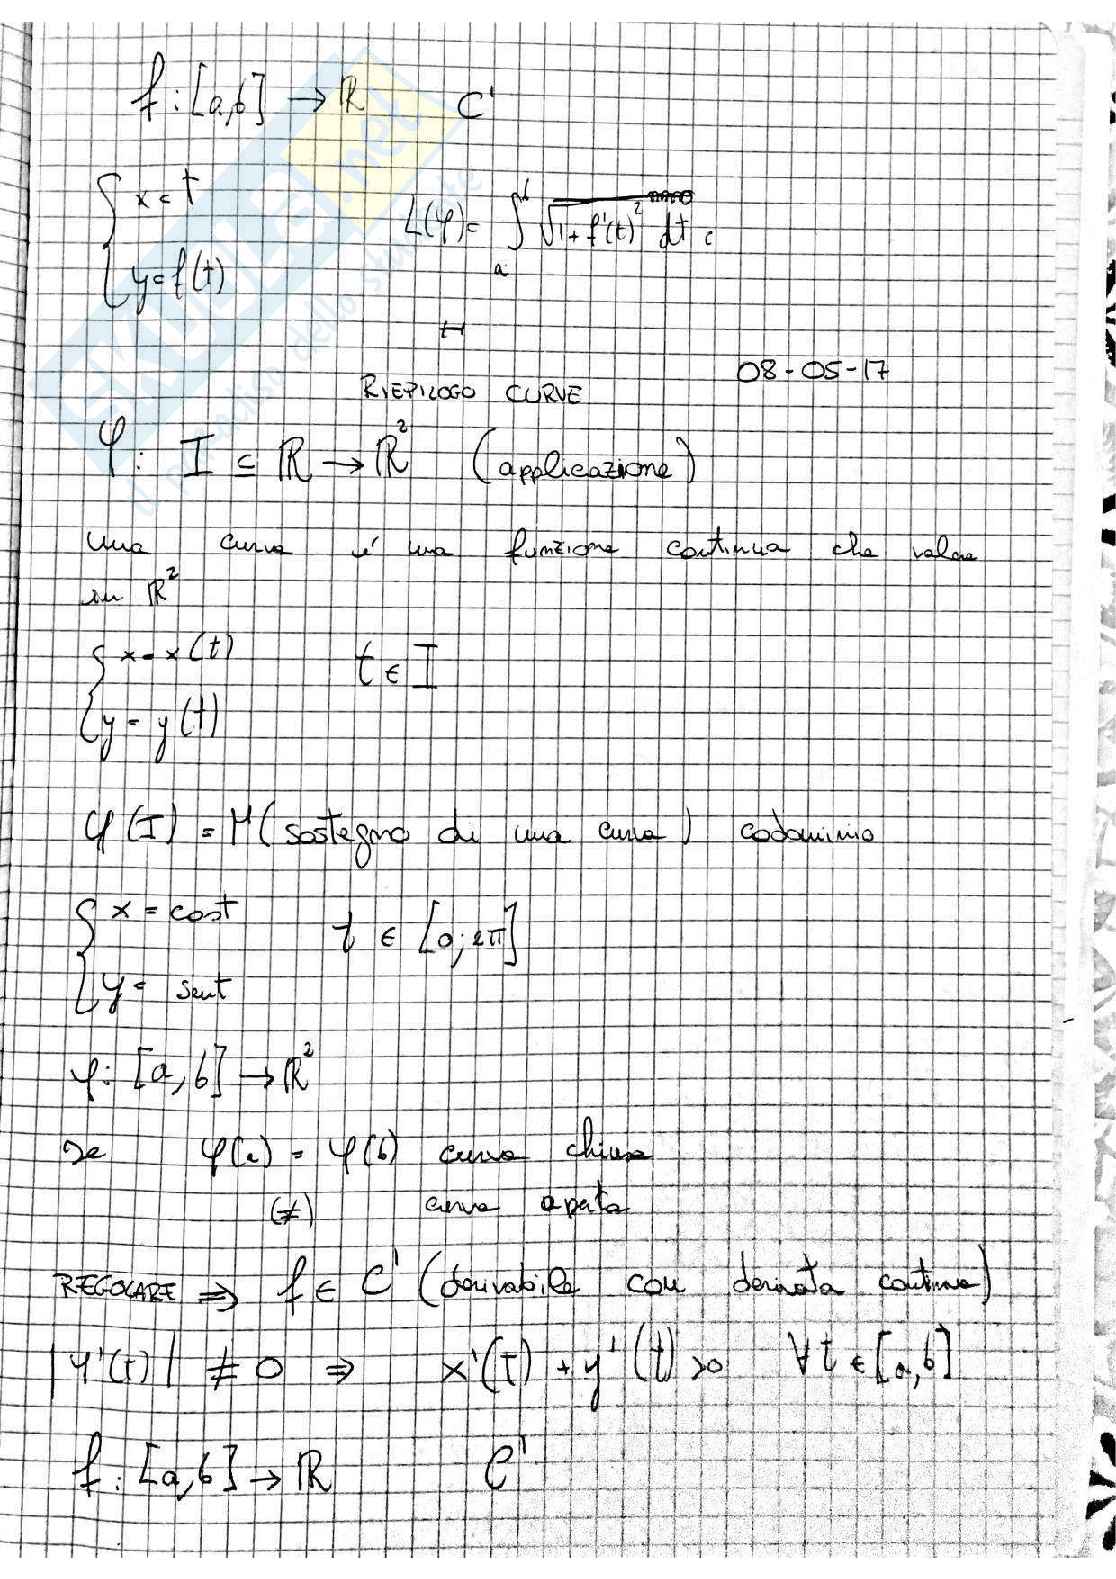 f : [a,b] → ℝ C'
{ x = t
L(φ) = ∫ₐᵇ √1 + f'(t)² dt =
y = f(t)
08-05-17
RIEPILOGO CURVE
φ : I ⊆ ℝ → ℝ² (applicazione)
una curva è una funzione continua che valori
su ℝ²
{ x = x(t) t ∈ I
y = y(t)
φ(I) = M (sostegno di una curva) codominio
{ x = cost t ∈ [0; 2π]
y = sent
φ : [a, b] → ℝ²
se φ(a) = φ(b) curva chiusa
(≠) curva aperta
REGOLARE ⇒ f ∈ C' (derivabile con derivata continua)
|φ'(t)| ≠ 0 ⇒ x'(t) + y'(t) > 0 ∀ t ∈ [a, b]
f : [a, b] → ℝ C'
SKUOLA.net
il paradiso dello studente